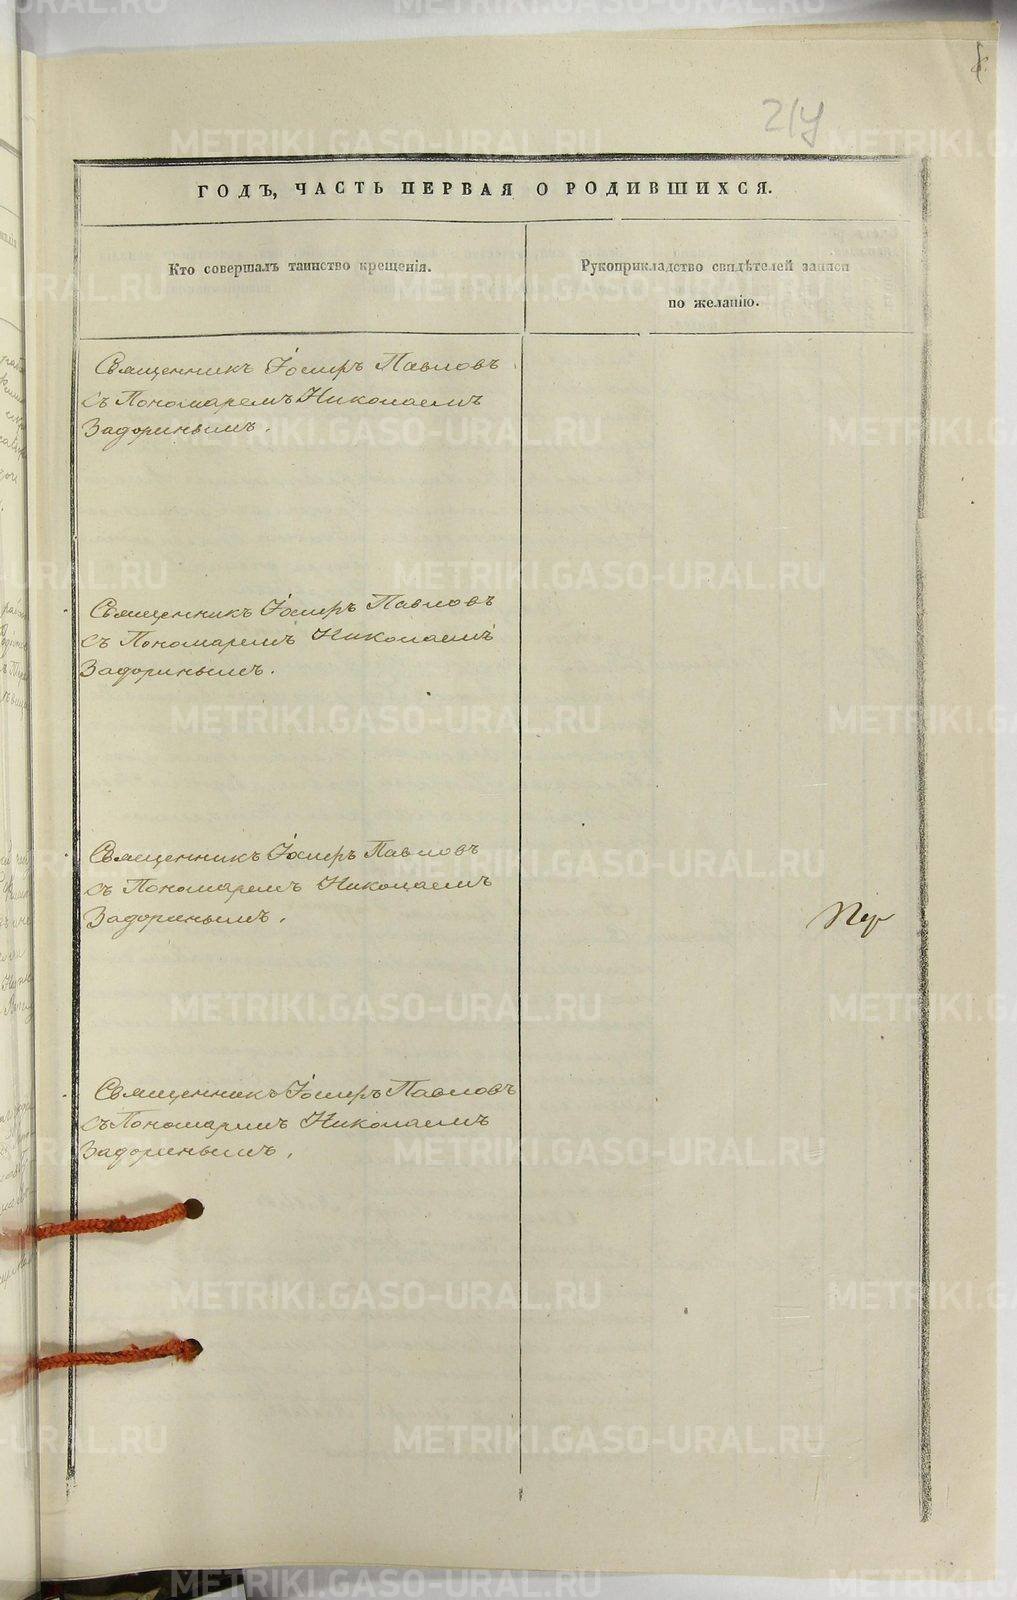 214
ГОДЪ, ЧАСТЬ ПЕРВАЯ О РОДИВШИХСЯ.
Кто совершалъ таинство крещенія.
Рукоприкладство свидѣтелей записи
по желанію.
Священникъ Іосифъ Павловъ
съ Пономаремъ Николаемъ
Задоринымъ.
Священникъ Іосифъ Павловъ
съ Пономаремъ Николаемъ
Задоринымъ.
Священникъ Іосифъ Павловъ
съ Пономаремъ Николаемъ
Задоринымъ.
Священникъ Іосифъ Павловъ
съ Пономаремъ Николаемъ
Задоринымъ.
METRIKI.GASO-URAL.RU